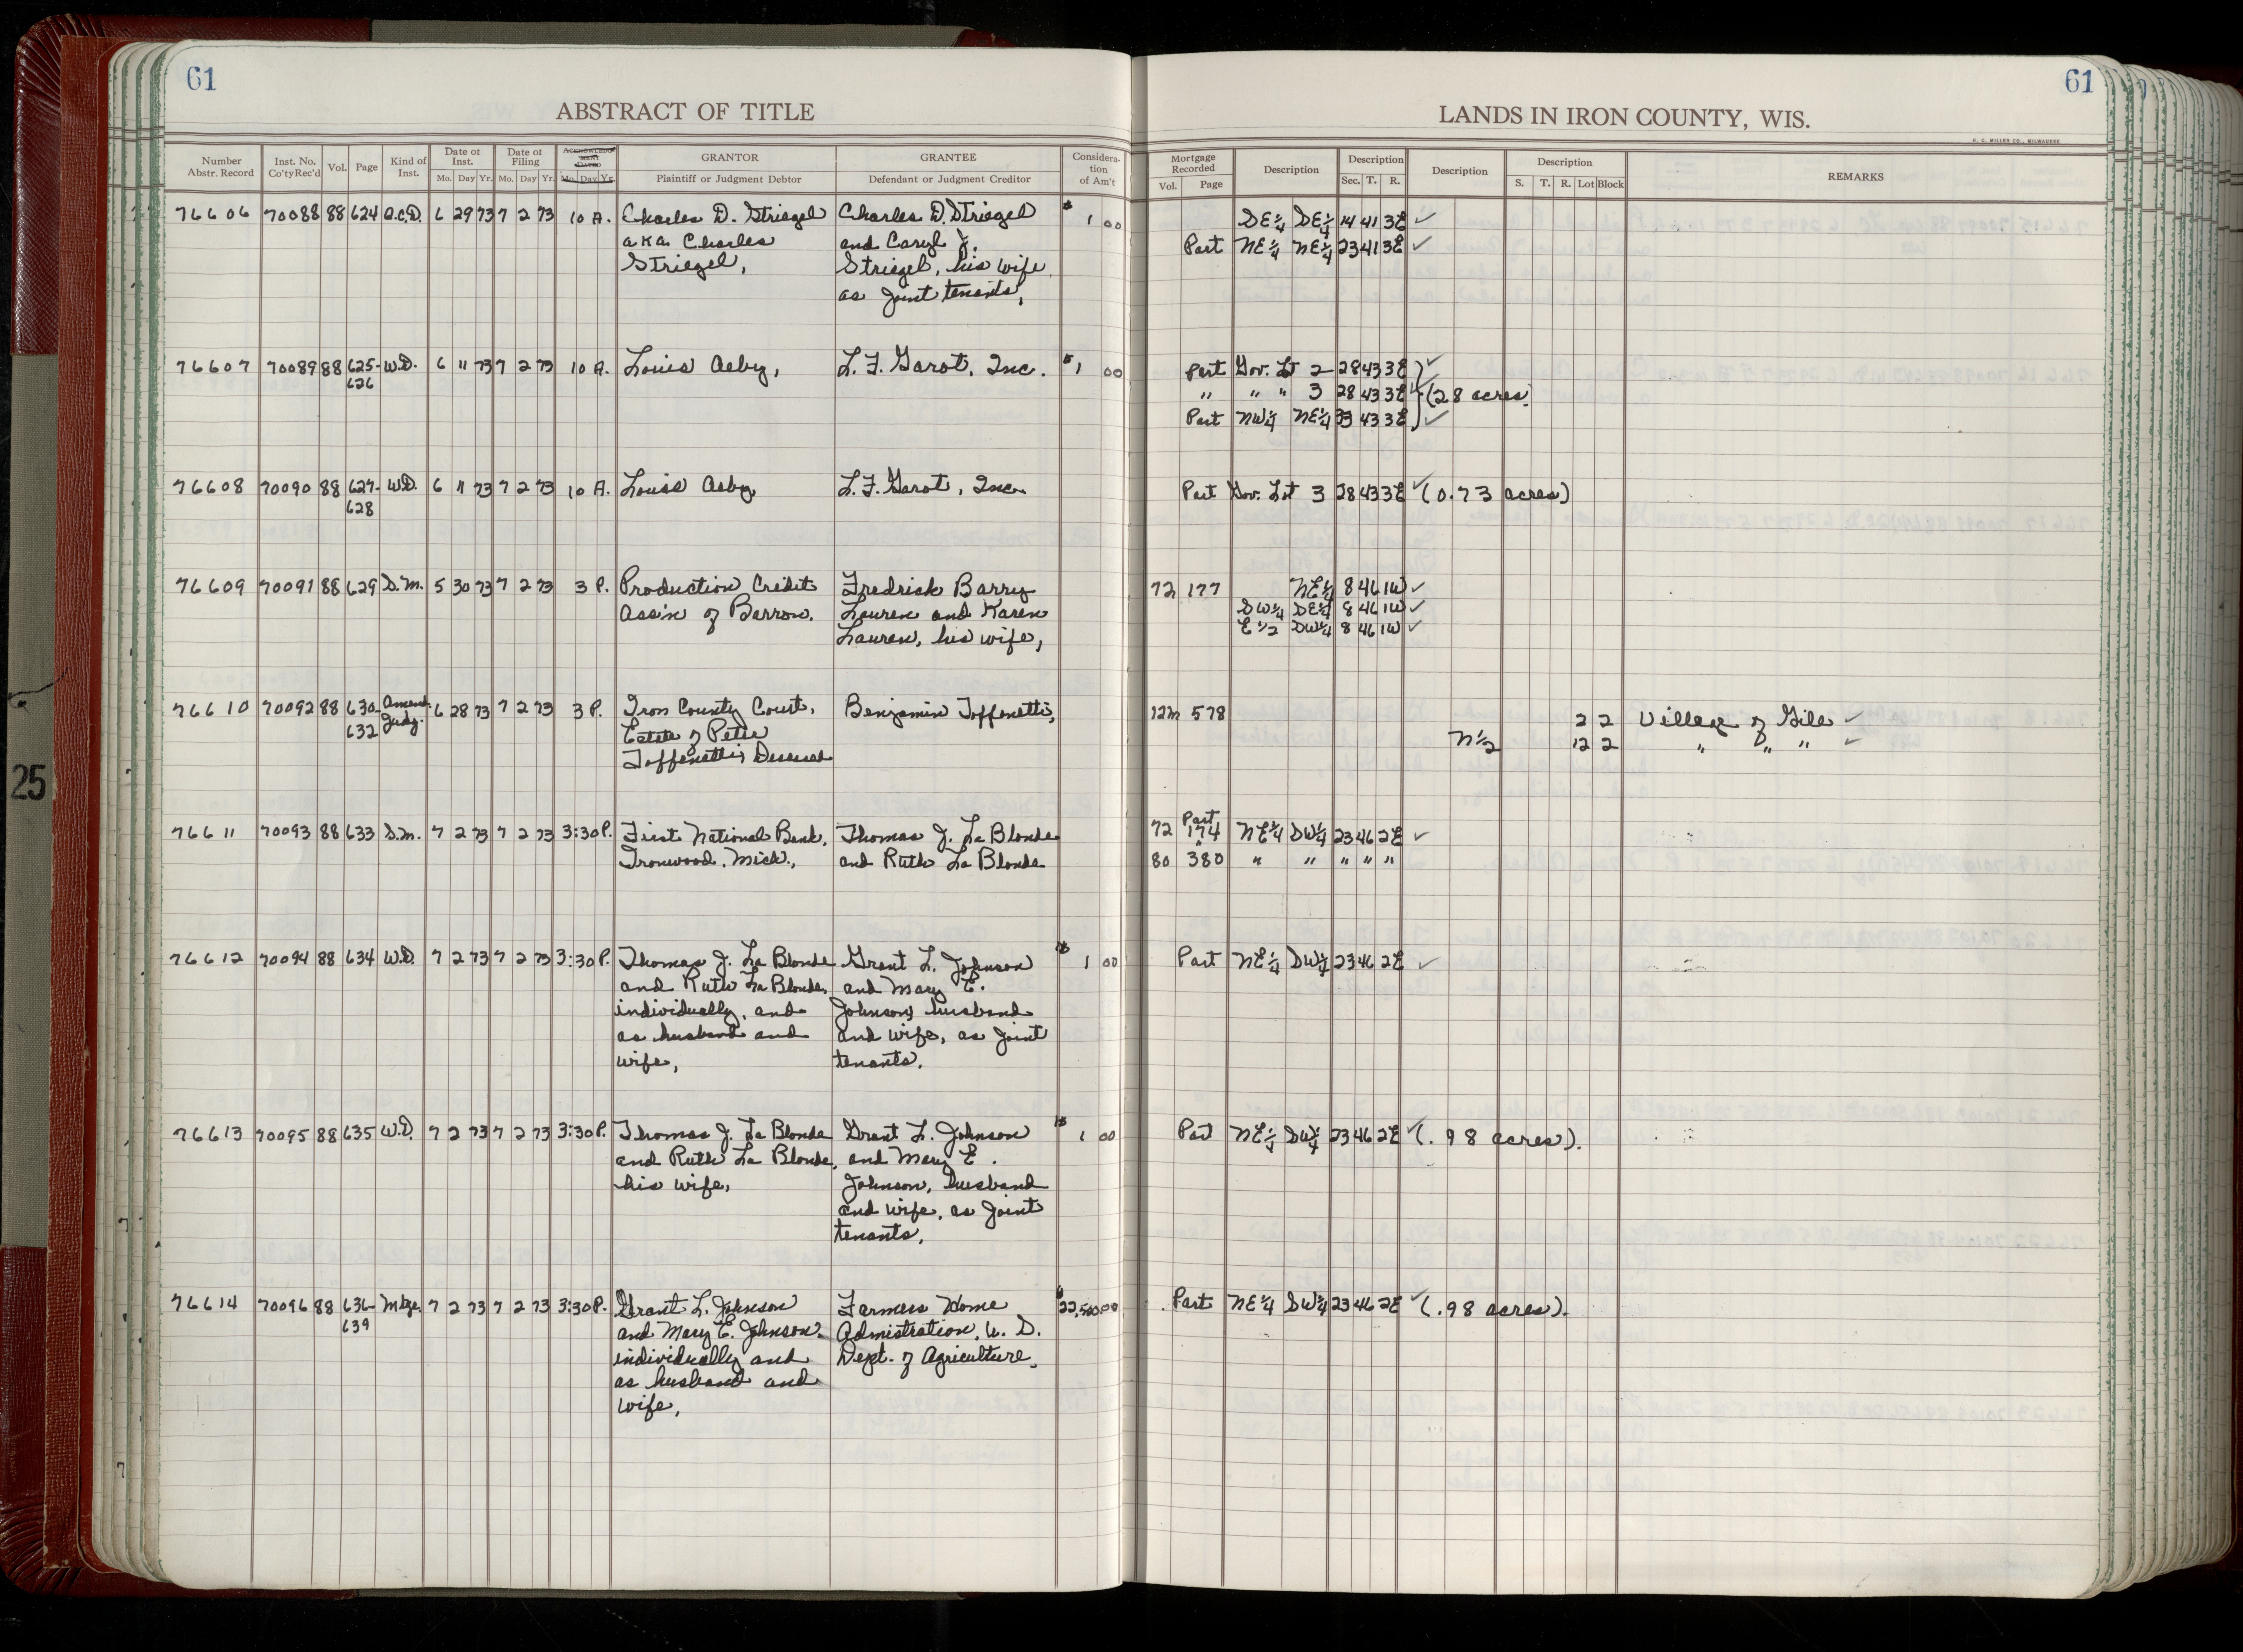 61
ABSTRACT OF TITLE
Number Abstr. Record | Inst. No. Co'ty Rec'd | Vol. | Page | Kind of Inst. | Date of Inst. Mo. Day Yr. | Date of Filing Mo. Day Yr. | ACKNOWLEDGMENT DATED Mo. Day Yr. | GRANTOR Plaintiff or Judgment Debtor | GRANTEE Defendant or Judgment Creditor | Consideration of Am't
76606 70088 88 624 Q.C.D. 6 29 73 7 2 73 10 A. Charles D. Striegel Charles D. Striegel $1 00
a k a. Charles and Caryl J.
Striegel, Striegel, his wife
as joint tenants,
76607 70089 88 625- W.D. 6 11 73 7 2 73 10 A. Louis Asby, L. F. Garot, Inc. $1 00
626
76608 70090 88 627- W.D. 6 11 73 7 2 73 10 A. Louis Asby, L. F. Garot, Inc.
628
76609 70091 88 629 S.M. 5 30 73 7 2 73 3 P. Production Credit Fredrick Barry
Ass'n of Barron. Lauren and Karen
Lauren, his wife,
76610 70092 88 630- Amend. 6 28 73 7 2 73 3 P. Iron County Court, Benjamin Toffenetti,
632 Judg. Estate of Peter
Toffenetti, Deceased
76611 70093 88 633 S.M. 7 2 73 7 2 73 3:30 P. First National Bank, Thomas J. La Blonde
Ironwood, Mich., and Ruth La Blonde
76612 70094 88 634 W.D. 7 2 73 7 2 73 3:30 P. Thomas J. La Blonde Grant L. Johnson $1 00
and Ruth La Blonde, and Mary E.
individually, and Johnson, husband
as husband and and wife, as joint
wife, tenants.
76613 70095 88 635 W.D. 7 2 73 7 2 73 3:30 P. Thomas J. La Blonde Grant L. Johnson $1 00
and Ruth La Blonde, and Mary E.
his wife, Johnson, husband
and wife, as joint
tenants,
76614 70096 88 636- Mtge. 7 2 73 7 2 73 3:30 P. Grant L. Johnson Farmers Home $22,500 00
639 and Mary E. Johnson, Admistration, U. S.
individually and Dept. of Agriculture,
as husband and
wife,
61
LANDS IN IRON COUNTY, WIS.
H. C. MILLER CO., MILWAUKEE
Mortgage Recorded Vol. Page | Description | Description Sec. T. R. | Description | Description S. T. R. Lot Block | REMARKS
SE¼ SE¼ 14 41 3E ✓
Part NE¼ NE¼ 23 41 3E ✓
Part Gov. Lt 2 28 43 3E ✓
" " " 3 28 43 3E ✓ (28 acres)
Part NW¼ NE¼ 33 43 3E ✓
Part Gov. Lot 3 28 43 3E ✓ (0.73 acres)
72 177 NE¼ 8 46 1W ✓
SW¼ SE¼ 8 46 1W ✓
E½ SW¼ 8 46 1W ✓
12m 578 2 2 Village of Gile ✓
N½ 12 2 " " " ✓
Part
72 174 NE¼ SW¼ 23 46 2E ✓
80 380 " " " " "
Part NE¼ SW¼ 23 46 2E ✓
Part NE¼ SW¼ 23 46 2E ✓ (.98 acres).
Part NE¼ SW¼ 23 46 2E ✓ (.98 acres).
25